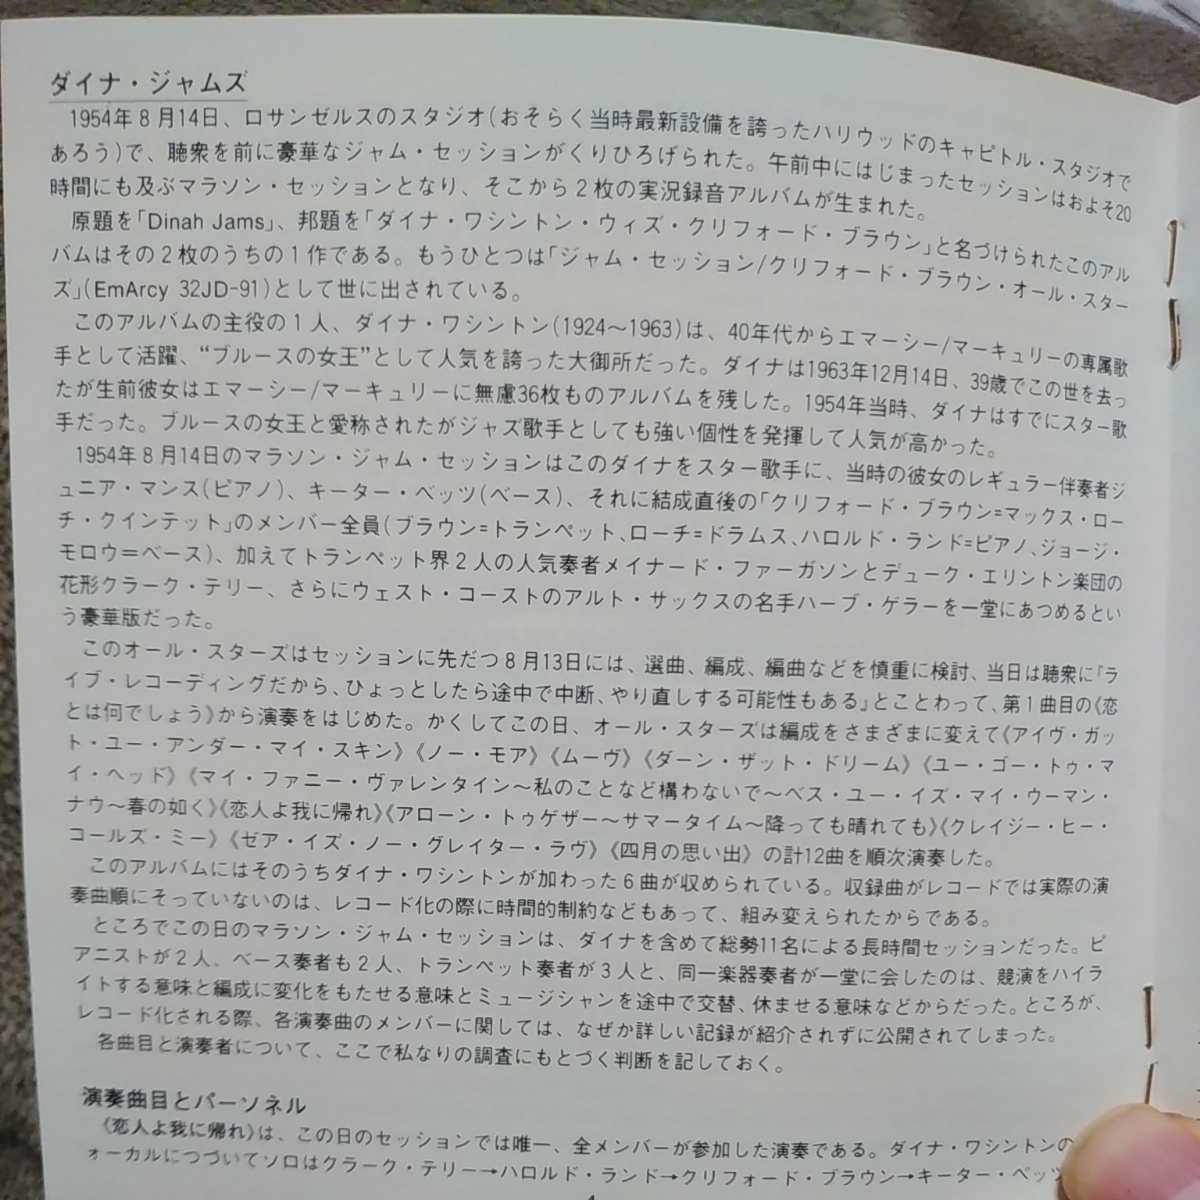 ダイナ・ジャムズ
1954年8月14日、ロサンゼルスのスタジオ(おそらく当時最新設備を誇ったハリウッドのキャピトル・スタジオで
あろう)で、聴衆を前に豪華なジャム・セッションがくりひろげられた。午前中にはじまったセッションはおよそ20
時間にも及ぶマラソン・セッションとなり、そこから2枚の実況録音アルバムが生まれた。
原題を「Dinah Jams」、邦題を「ダイナ・ワシントン・ウィズ・クリフォード・ブラウン」と名づけられたこのアル
バムはその2枚のうちの1作である。もうひとつは「ジャム・セッション/クリフォード・ブラウン・オール・スター
ズ」(EmArcy 32JD-91)として世に出されている。
このアルバムの主役の1人、ダイナ・ワシントン(1924〜1963)は、40年代からエマーシー/マーキュリーの専属歌
手として活躍、“ブルースの女王”として人気を誇った大御所だった。ダイナは1963年12月14日、39歳でこの世を去っ
たが生前彼女はエマーシー/マーキュリーに無慮36枚ものアルバムを残した。1954年当時、ダイナはすでにスター歌
手だった。ブルースの女王と愛称されたがジャズ歌手としても強い個性を発揮して人気が高かった。
1954年8月14日のマラソン・ジャム・セッションはこのダイナをスター歌手に、当時の彼女のレギュラー伴奏者ジ
ュニア・マンス(ピアノ)、キーター・ベッツ(ベース)、それに結成直後の「クリフォード・ブラウン=マックス・ロー
チ・クインテット」のメンバー全員(ブラウン=トランペット、ローチ=ドラムス、ハロルド・ランド=ピアノ、ジョージ・
モロウ=ベース)、加えてトランペット界2人の人気奏者メイナード・ファーガソンとデューク・エリントン楽団の
花形クラーク・テリー、さらにウェスト・コーストのアルト・サックスの名手ハーブ・ゲラーを一堂にあつめるとい
う豪華版だった。
このオール・スターズはセッションに先だつ8月13日には、選曲、編成、編曲などを慎重に検討、当日は聴衆に『ラ
イブ・レコーディングだから、ひょっとしたら途中で中断、やり直しする可能性もある』とことわって、第1曲目の《恋
とは何でしょう》から演奏をはじめた。かくしてこの日、オール・スターズは編成をさまざまに変えて《アイヴ・ガッ
ト・ユー・アンダー・マイ・スキン》《ノー・モア》《ムーヴ》《ダーン・ザット・ドリーム》《ユー・ゴー・トゥ・マ
イ・ヘッド》《マイ・ファニー・ヴァレンタイン〜私のことなど構わないで〜ベス・ユー・イズ・マイ・ウーマン・
ナウ〜春の如く》《恋人よ我に帰れ》《アローン・トゥゲザー〜サマータイム〜降っても晴れても》《クレイジー・ヒー・
コールズ・ミー》《ゼア・イズ・ノー・グレイター・ラヴ》《四月の思い出》の計12曲を順次演奏した。
このアルバムにはそのうちダイナ・ワシントンが加わった6曲が収められている。収録曲がレコードでは実際の演
奏曲順にそっていないのは、レコード化の際に時間的制約などもあって、組み変えられたからである。
ところでこの日のマラソン・ジャム・セッションは、ダイナを含めて総勢11名による長時間セッションだった。ピ
アニストが2人、ベース奏者も2人、トランペット奏者が3人と、同一楽器奏者が一堂に会したのは、競演をハイラ
イトする意味と編成に変化をもたせる意味とミュージシャンを途中で交替、休ませる意味などからだった。ところが、
レコード化される際、各演奏曲のメンバーに関しては、なぜか詳しい記録が紹介されずに公開されてしまった。
各曲目と演奏者について、ここで私なりの調査にもとづく判断を記しておく。
演奏曲目とパーソネル
《恋人よ我に帰れ》は、この日のセッションでは唯一、全メンバーが参加した演奏である。ダイナ・ワシントンの
ォーカルにつづいてソロはクラーク・テリー→ハロルド・ランド→クリフォード・ブラウン→キーター・ベッツ